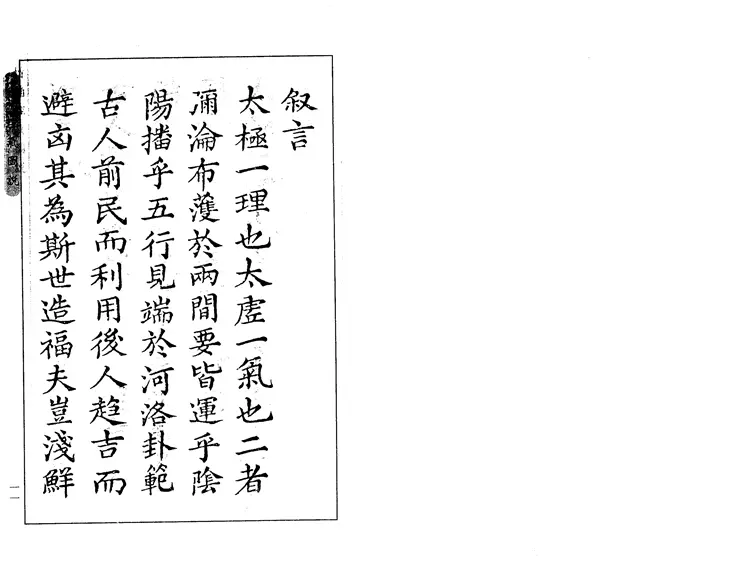 叙言
太極一理也太虛一氣也二者
彌淪布濩於兩間要皆運乎陰
陽播乎五行見端於河洛卦範
古人前民而利用後人趋吉而
避凶其為斯世造福夫豈淺鮮
圖說
一一